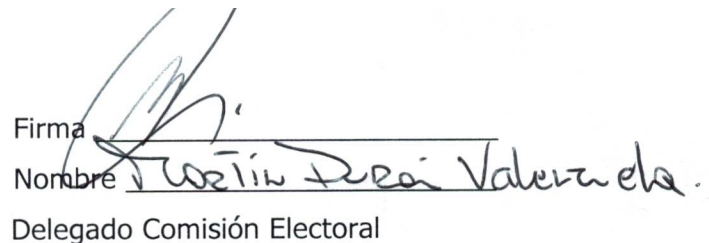 Firma
Nombre Martín Durán Valenzuela.
Delegado Comisión Electoral